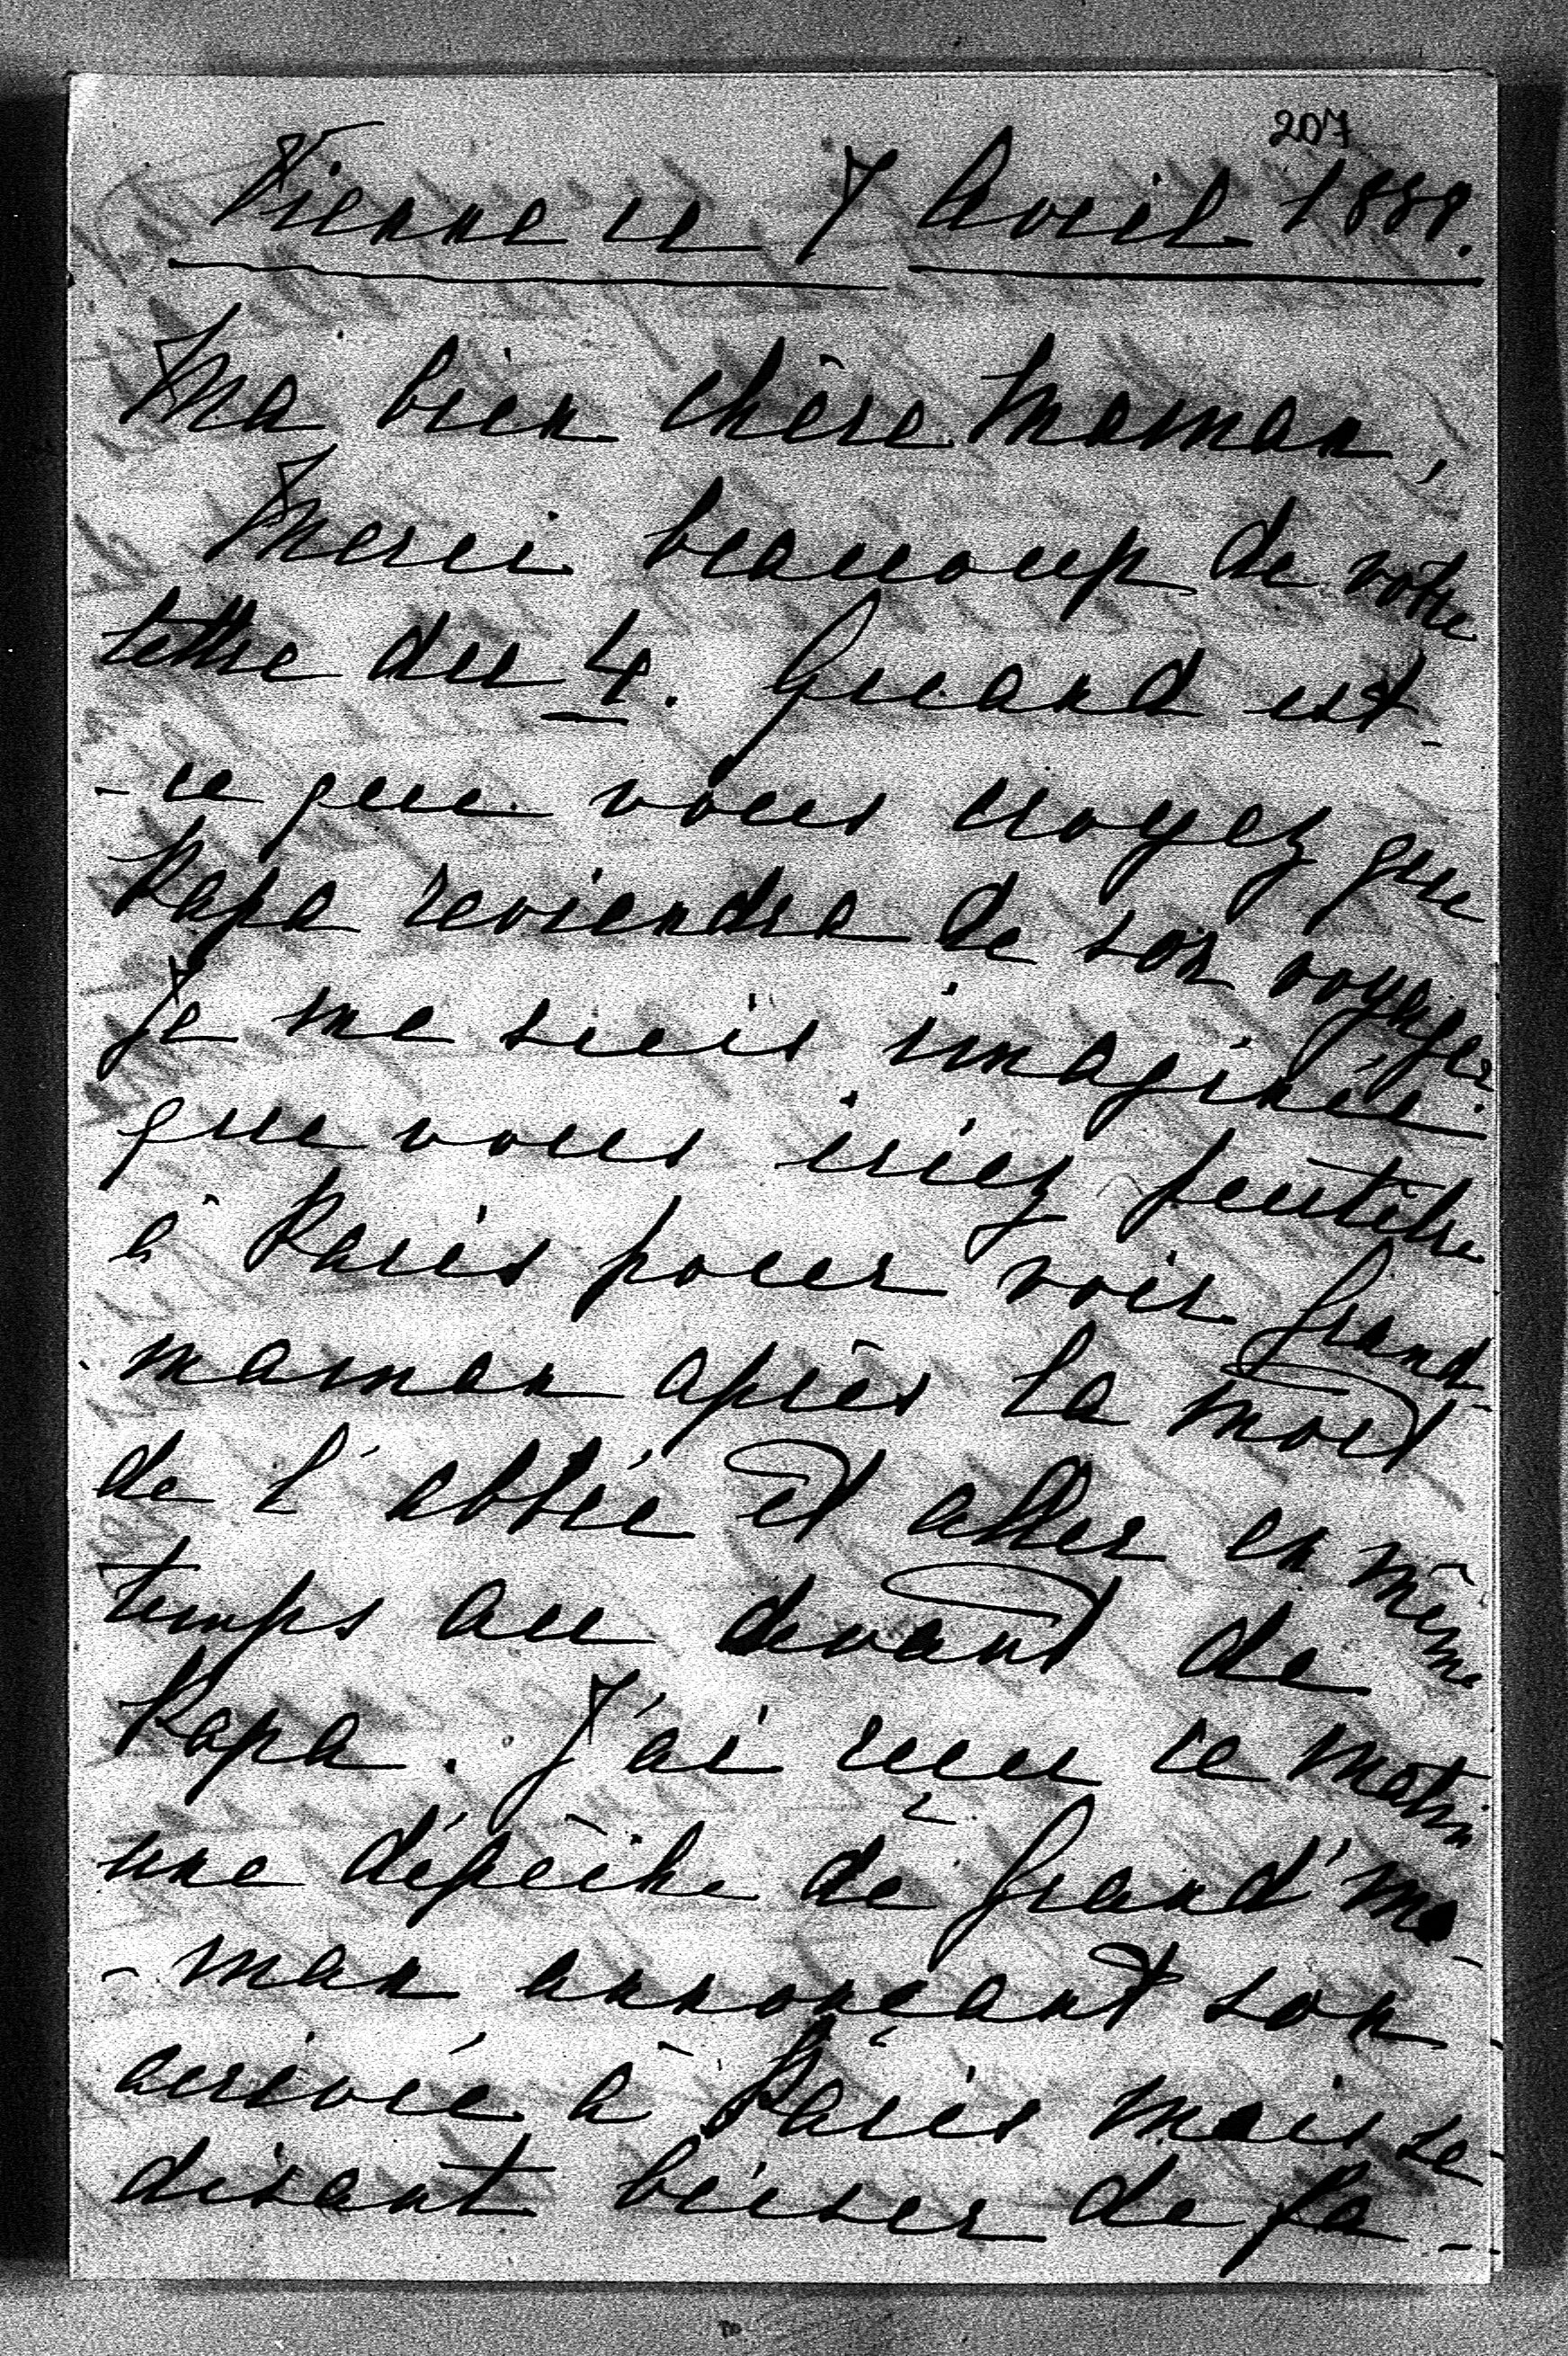 207
Vienne ce 7 Avril 1889.
Ma bien chère Maman,
Merci beaucoup de votre
lettre du 4. Quand est-
-ce que vous croyez que
Papa reviendra de son voyage?
Je me suis imaginée
que vous iriez peutêtre
à Paris pour voir Grand-
maman après la mort
de l'abbé et aller en même
temps au devant de
Papa. J'ai reçu ce matin
une dépêche de Grand'ma-
-man annonçant son
arrivée à Paris mais se
disant de fa-